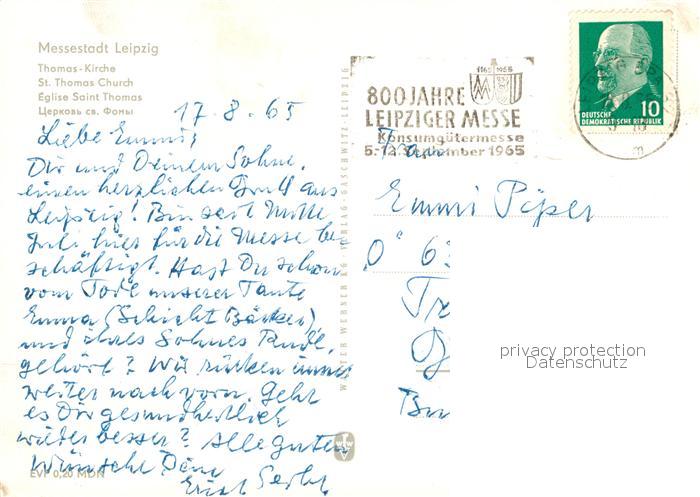 Messestadt Leipzig
Thomas-Kirche
St. Thomas Church
Église Saint Thomas
Церковь св. Фомы
17.8.65
Liebe Emmi,
Dir und Deinem Sohne
einen herzlichen Gruß aus
Leipzig! Bin seit Mitte
Juli hier für die Messe be-
schäftigt. Hast Du schon
vom Tode unserer Tante
Emma
und ihres Sohnes
gehört? Wir rücken immer
weiter nach vorn. Geht
es Dir gesundheitlich
wieder besser? Alle guten
Wünsche Dein
Erich
EVP 0,20 MDN
WALTER WERNER KG VERLAG · GASCHWITZ-LEIPZIG
1165 1965
800 JAHRE
LEIPZIGER MESSE
Konsumgütermesse
5.-12. September 1965
DEUTSCHE
DEMOKRATISCHE REPUBLIK
10
Frau
Emmi Piper
privacy protection
Datenschutz